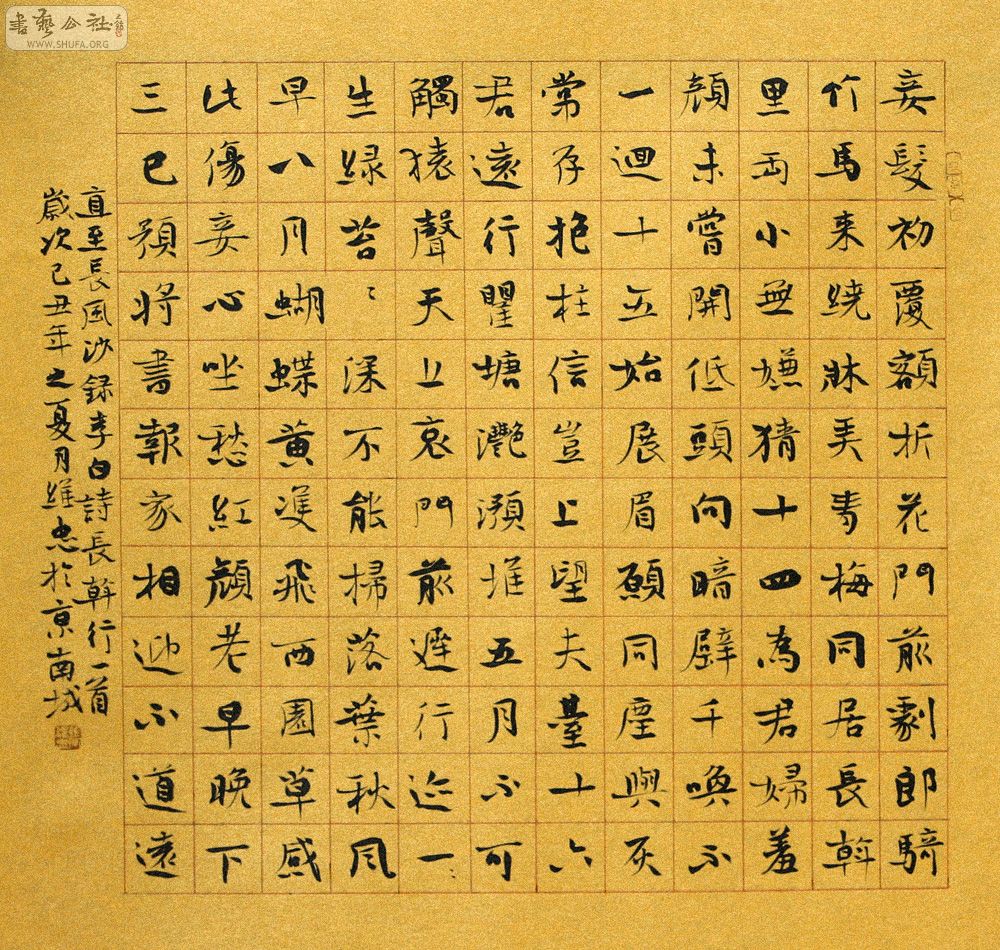 書藝公社
WWW.SHUFA.ORG
妾髮初覆額折花門前劇郎騎
竹馬來繞牀弄青梅同居長幹
里兩小無嫌猜十四為君婦羞
顏未嘗開低頭向暗壁千喚不
一迴十五始展眉願同塵與灰
常存抱柱信豈上望夫臺十六
君遠行瞿塘灩澦堆五月不可
觸猿聲天上哀門前遲行跡一〻
生綠苔〻深不能掃落葉秋風
早八月蝴蝶黃雙飛西園草感
此傷妾心坐愁紅顏老早晚下
三巴預將書報家相迎不道遠
直至長風沙錄李白詩長幹行一首
歲次己丑年之夏月維忠於京南城